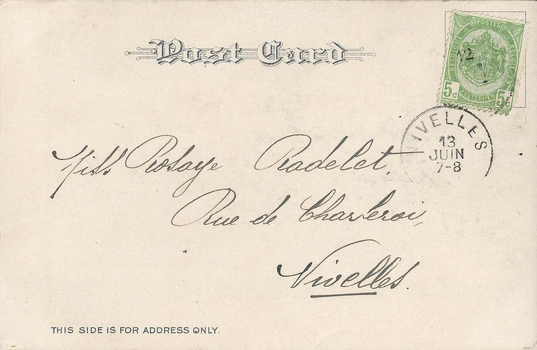 Post Card
5c 5c
NIVELLES
13
JUIN
7-8
Miss Rosaye Radelet,
Rue de Charleroi,
Nivelles.
THIS SIDE IS FOR ADDRESS ONLY.